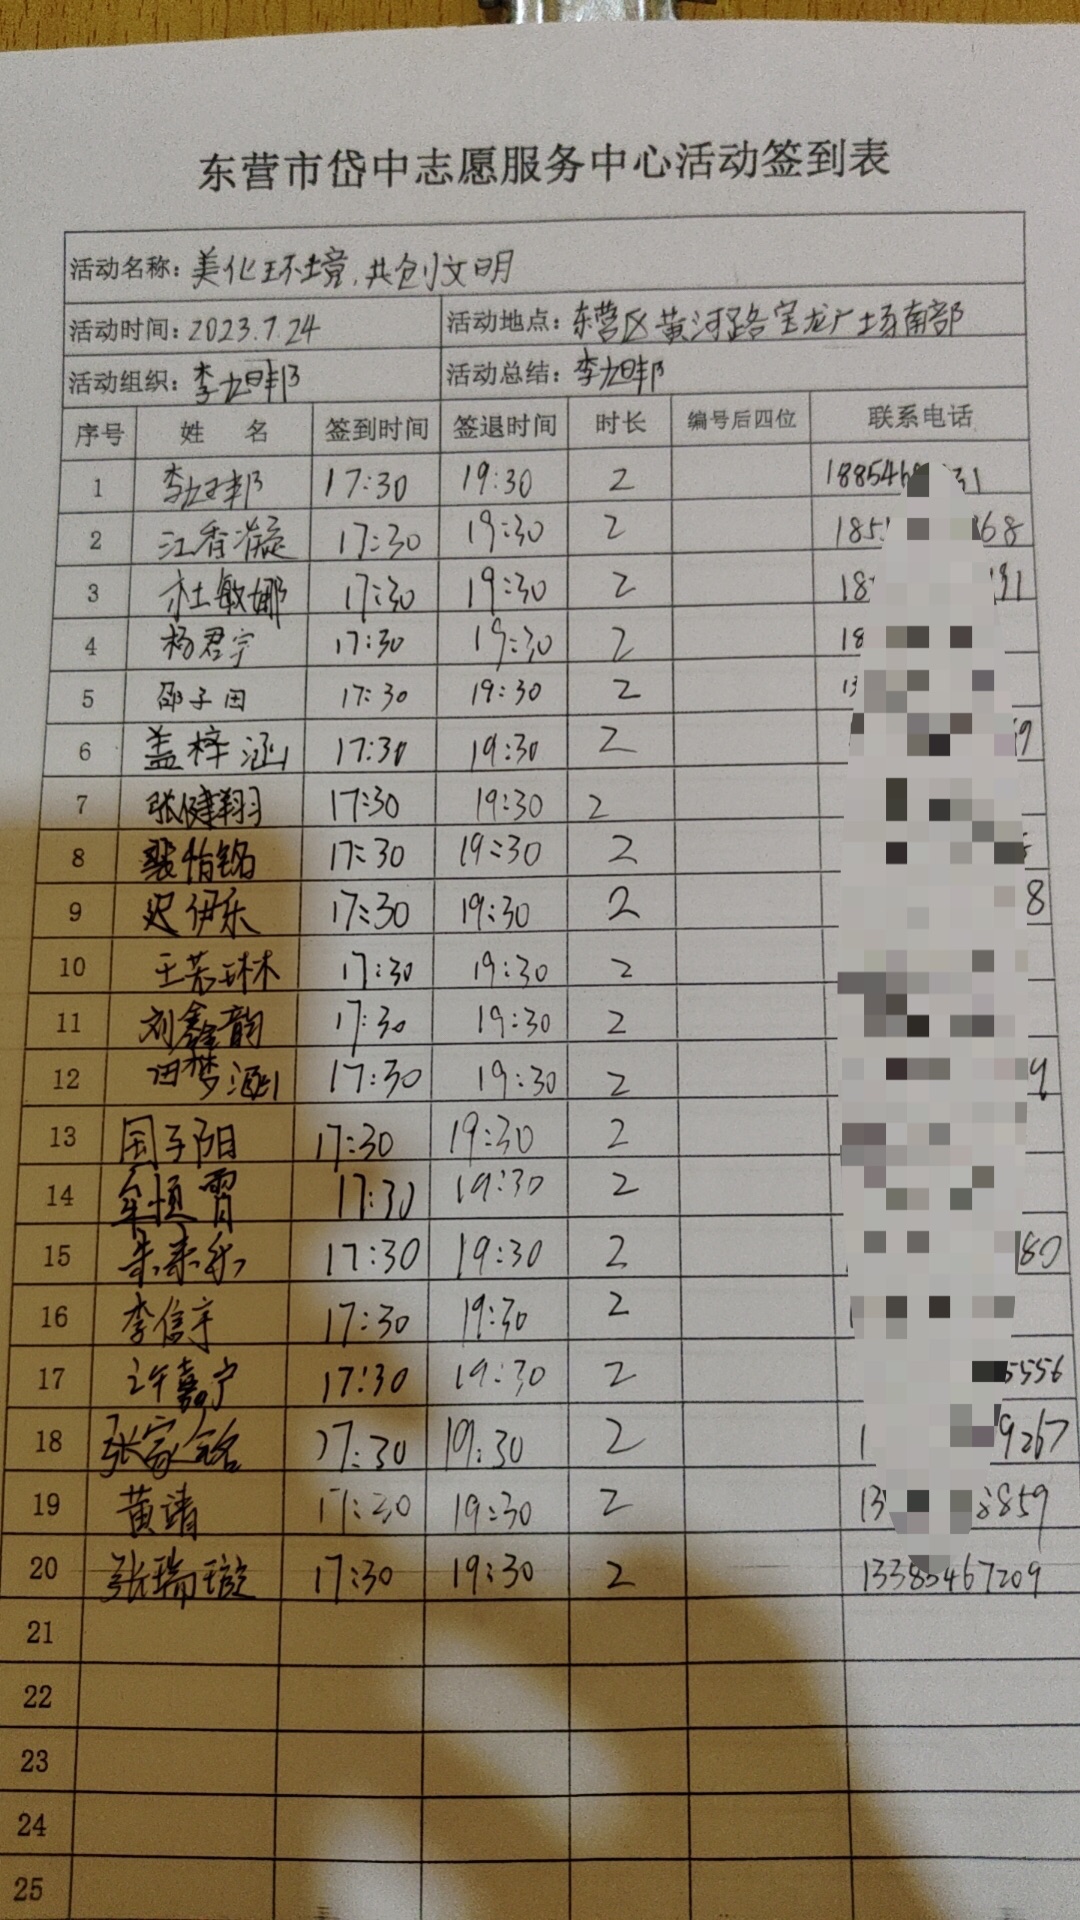 东营市岱中志愿服务中心活动签到表
活动名称：美化环境，共创文明
活动时间：2023.7.24 活动地点：东营区黄河路宝龙广场南部
活动组织：李 邦 活动总结：李 邦
序号 姓 名 签到时间 签退时间 时长 编号后四位 联系电话
1 李 邦 17:30 19:30 2 188546 31
2 江香凝 17:30 19:30 2 185 68
3 杜敏娜 17:30 19:30 2 18 91
4 杨君宇 17:30 19:30 2 18
5 邵子田 17:30 19:30 2 13
6 盖梓涵 17:30 19:30 2 9
7 张健翔 17:30 19:30 2
8 裴怡铭 17:30 19:30 2
9 迟伊乐 17:30 19:30 2 8
10 王若琳 17:30 19:30 2
11 刘鑫韵 17:30 19:30 2
12 田梦涵 17:30 19:30 2 9
13 国子阳 17:30 19:30 2
14 恒霄 17:30 19:30 2
15 17:30 19:30 2 80
16 李信宇 17:30 19:30 2
17 许嘉宁 17:30 19:30 2 5556
18 张家铭 17:30 19:30 2 1 9267
19 黄靖 17:30 19:30 2 13 8859
20 张瑞璇 17:30 19:30 2 13385467209
21
22
23
24
25